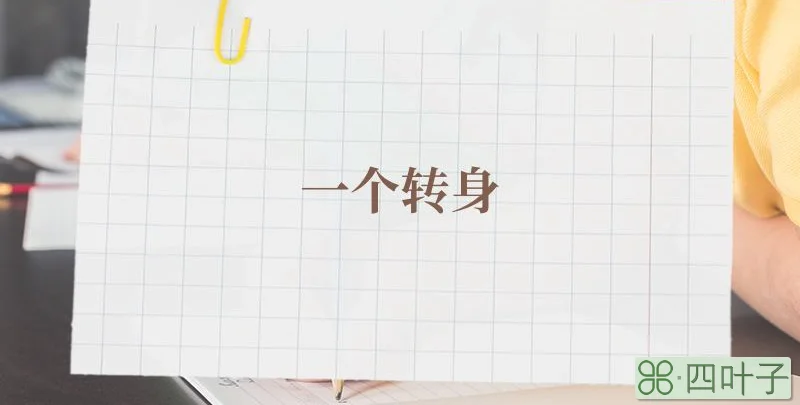 一个转身
四叶子